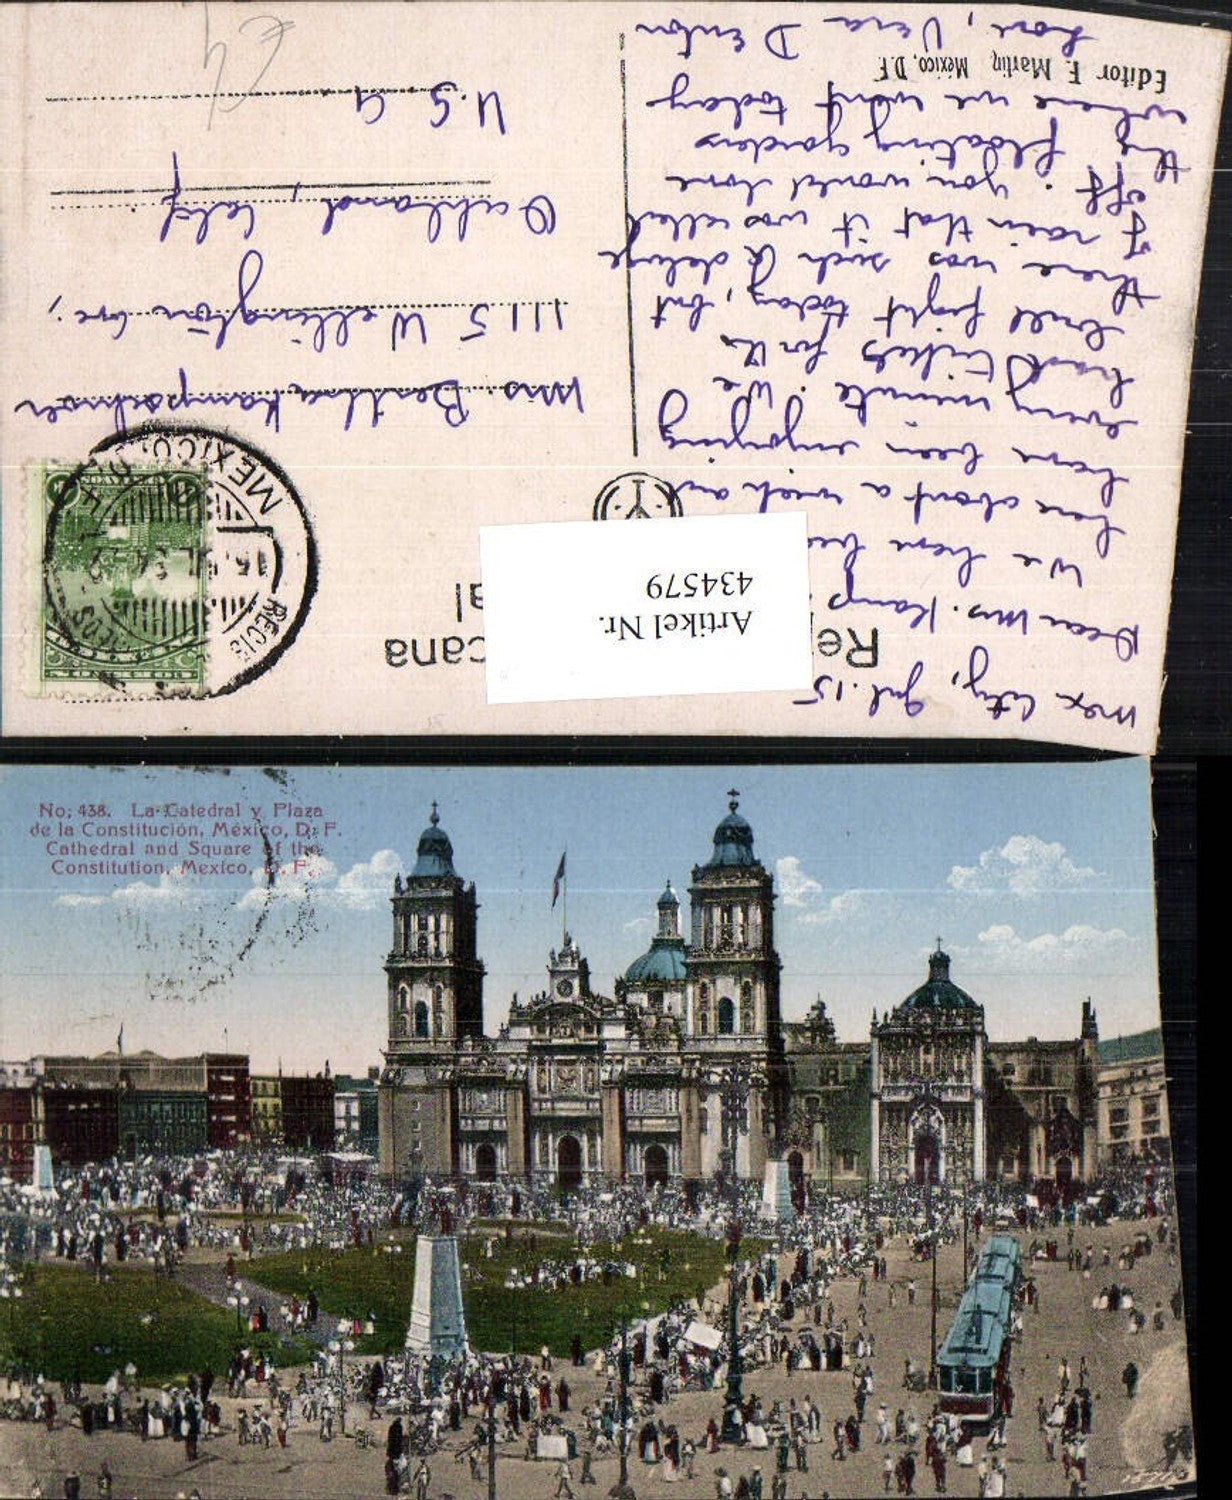 Mex City, Jul. 15
Dear Mrs. Kamp
We have be
here about a week and
have been enjoying
every minute. We
had tickets for the
bull fight today, but
there was such a deluge
of rain that it was called
off. You would love
the floating gardens
where we went today
Love, Vera Denton
Editor F. Martin, México, D.F.
Re cana
al
Artikel Nr.
434579
RECIB
MEXICO, D.F.
Mrs. Bertha Kampschner
1115 Wellington Ave.,
Oakland, Calif
U.S.A
€4
No; 438. La Catedral y Plaza
de la Constitución, México, D. F.
Cathedral and Square of the
Constitution, Mexico, D. F.